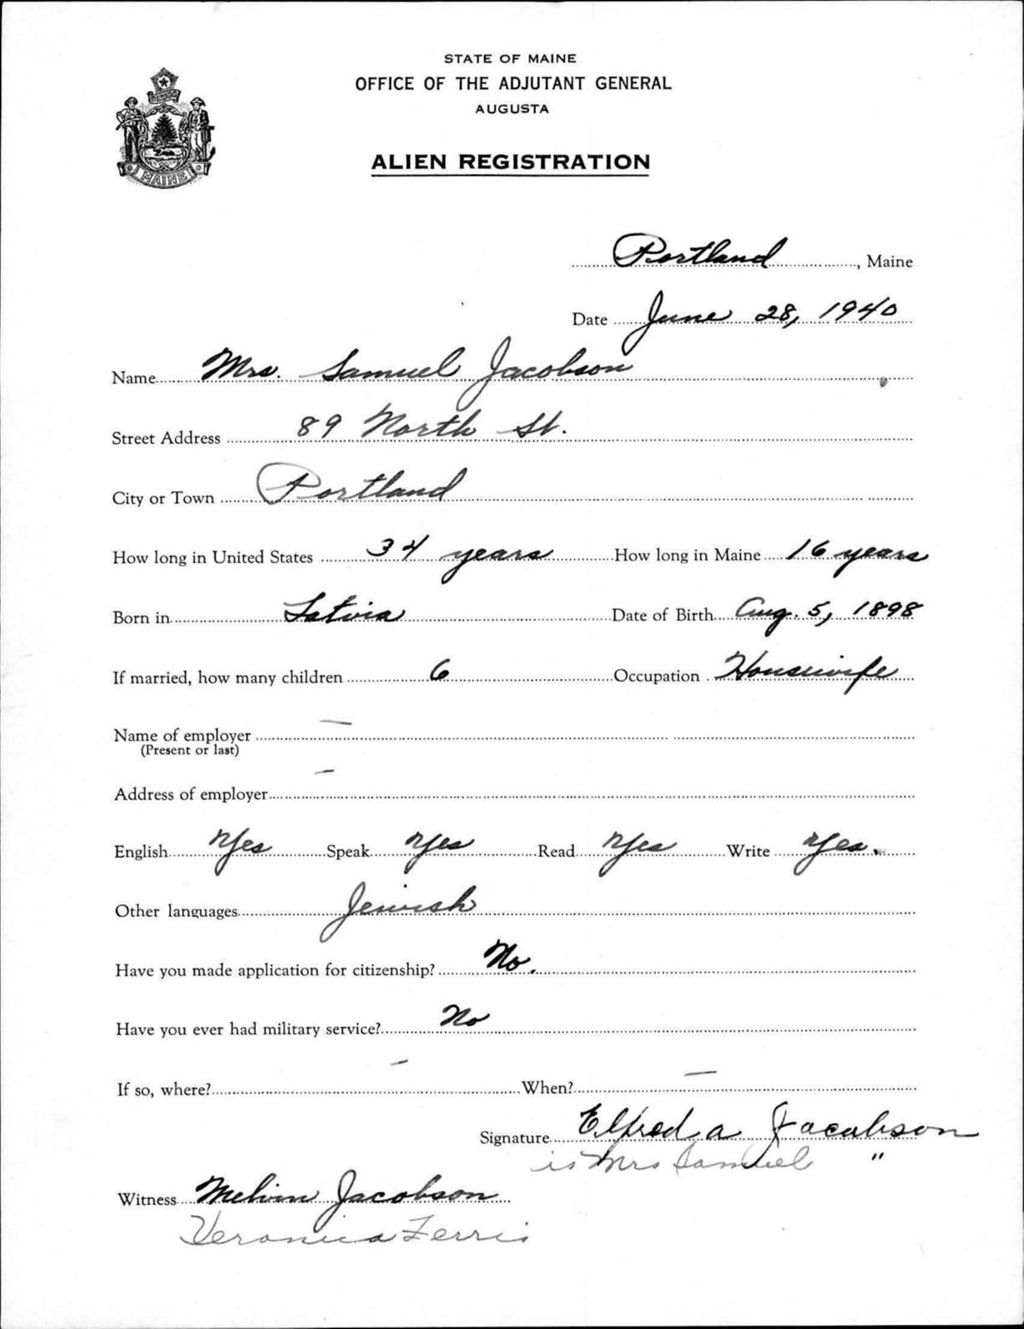 STATE OF MAINE
OFFICE OF THE ADJUTANT GENERAL
AUGUSTA
MAINE
ALIEN REGISTRATION
Portland, Maine
Date June 28, 1940
Name Mrs. Samuel Jacobson
Street Address 89 North St.
City or Town Portland
How long in United States 34 years How long in Maine 16 years
Born in Latvia Date of Birth Aug. 5, 1898
If married, how many children 6 Occupation Housewife
Name of employer —
(Present or last)
Address of employer —
English Yes Speak Yes Read Yes Write Yes.
Other languages Jewish
Have you made application for citizenship? No.
Have you ever had military service? No
If so, where? — When? —
Signature Elfreda Jacobson
is Mrs Samuel "
Witness Melvin Jacobson
Veronica Ferris